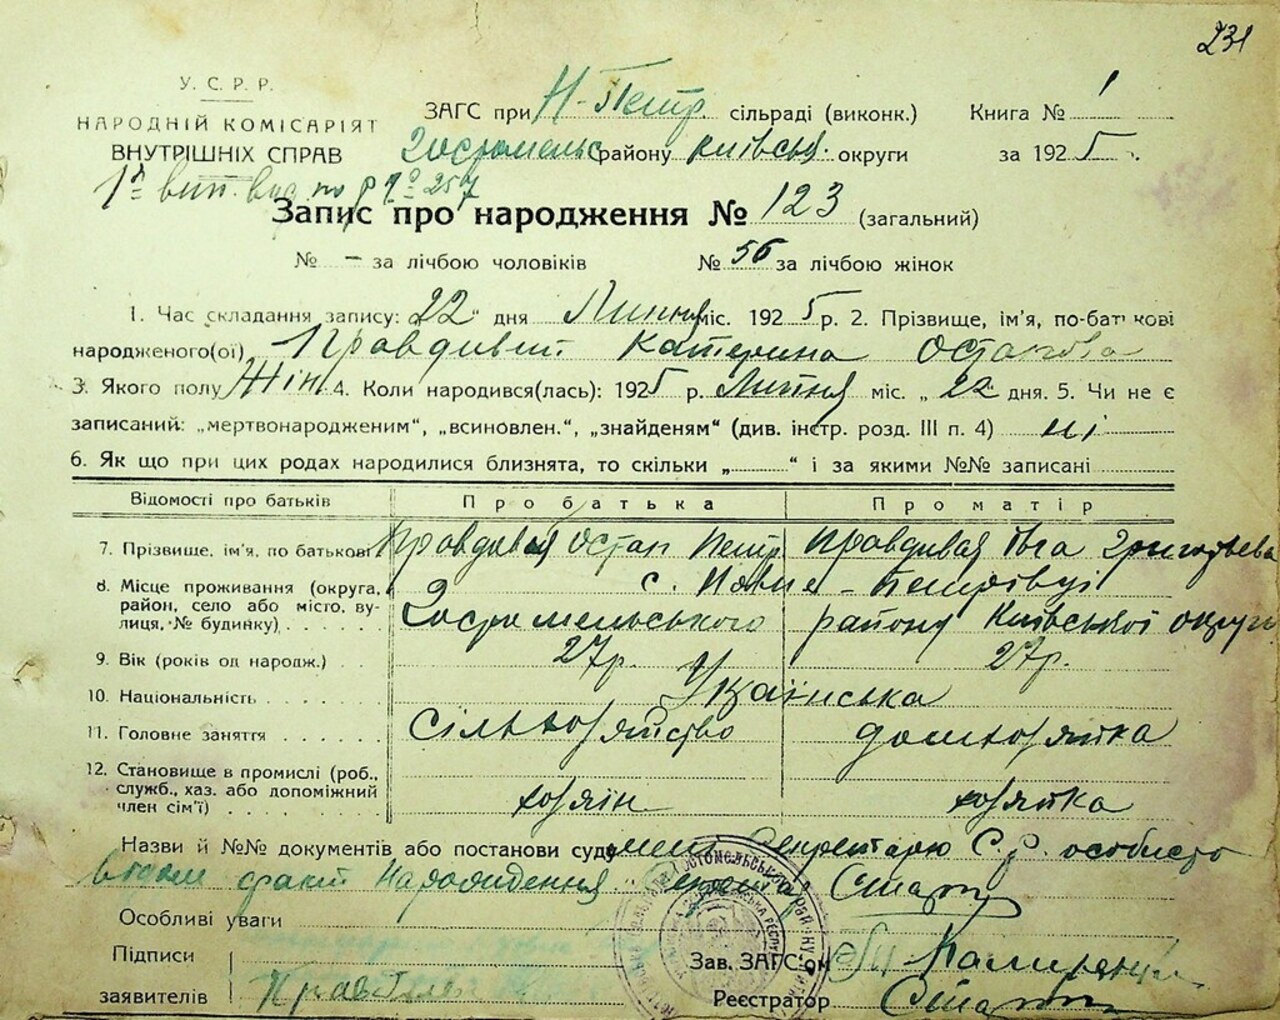 231
У. С. Р. Р.
НАРОДНІЙ КОМІСАРІЯТ
ВНУТРІШНІХ СПРАВ
ЗАГС при Н-Петр. сільраді (виконк.) Книга № 1
району київськ. округи за 1925 р.
Запис про народження № 123 (загальний)
№ - за лічбою чоловіків № 56 за лічбою жінок
1. Час складання запису: 22 " дня Липня міс. 1925 р. 2. Прізвище, ім'я, по-батькові
народженого(ої) Катерина Остапова
3. Якого полу Жін. 4. Коли народився(лась): 1925 р. Липня міс. „ 22 дня. 5. Чи не є
записаний: „мертвонародженим", „всиновлен.", „знайденям" (див. інстр. розд. III п. 4) ні
6. Як що при цих родах народилися близнята, то скільки „ " і за якими №№ записані
Відомості про батьків Про батька Про матір
7. Прізвище, ім'я, по батькові Правдивий Остап Петр Правдивая Ївга
8. Місце проживання (округа, район, село або місто, вулиця, № будинку) с. Нові-Петрівці
Гостомельського району Київської округи
9. Вік (років од народж.) 27р. 27р.
10. Національність Українська
11. Головне заняття Сільхозяйство домхозяйка
12. Становище в промислі (роб., служб., хаз. або допоміжний член сім'ї) хозяїн хозяйка
Назви й №№ документів або постанови суду мені Секретарю С.Р. особисто
факт народження Секретар
Особливі уваги
Підписи
заявителів
Зав. ЗАГС'ом
Реєстратор